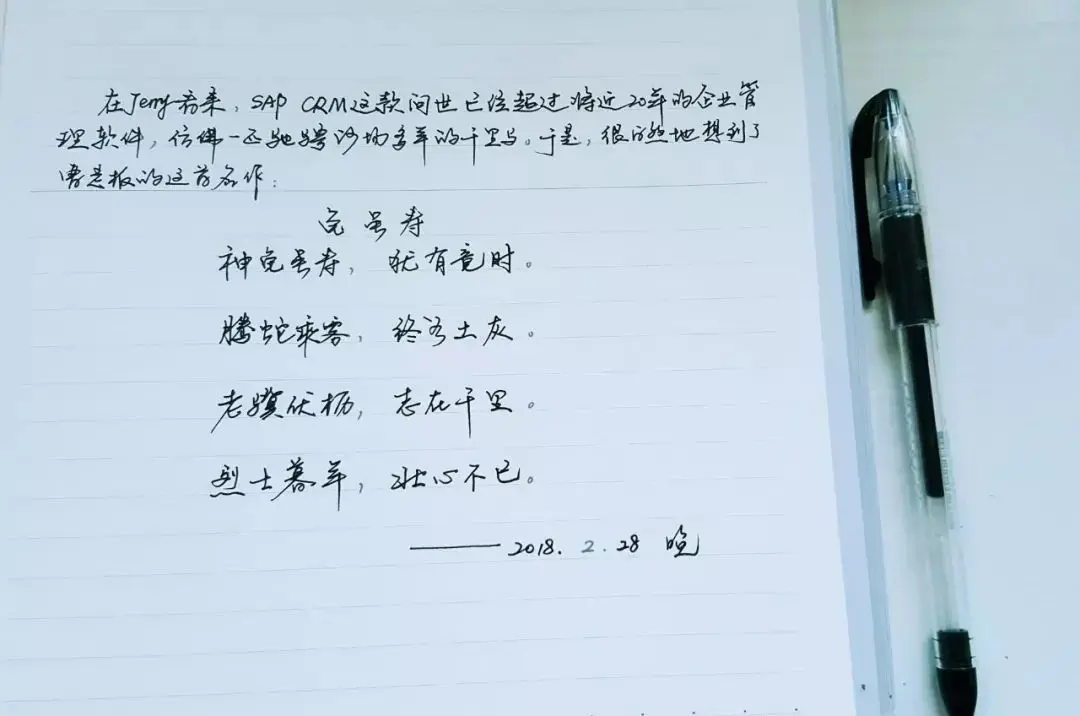 在Jerry看来，SAP CRM这款问世已经超过将近20年的企业管
理软件，仿佛一匹驰骋沙场多年的千里马。于是，很自然地想到了
曹老板的这首名作：
龟虽寿
神龟虽寿，犹有竟时。
腾蛇乘雾，终为土灰。
老骥伏枥，志在千里。
烈士暮年，壮心不已。
——2018.2.28 晚